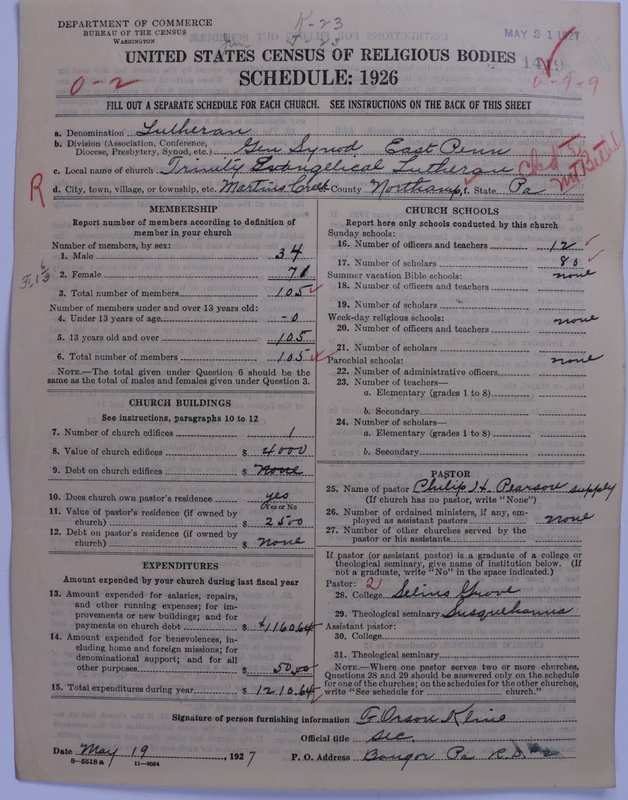 DEPARTMENT OF COMMERCE
BUREAU OF THE CENSUS
WASHINGTON
K-23
J-23
MAY 21 1927
1419
UNITED STATES CENSUS OF RELIGIOUS BODIES
SCHEDULE: 1926
0-2
0-9-9
FILL OUT A SEPARATE SCHEDULE FOR EACH CHURCH. SEE INSTRUCTIONS ON THE BACK OF THIS SHEET
a. Denomination Lutheran
b. Division (Association, Conference, Diocese, Presbytery, Synod, etc.) Gen Synod East Penn
c. Local name of church Trinity Evangelical Lutheran
Mt Bethel
R
d. City, town, village, or township, etc. Martins Creek County Northamp. f. State Pa
MEMBERSHIP
Report number of members according to definition of member in your church
Number of members, by sex:
1. Male 34
2. Female 71
3. Total number of members 105
Number of members under and over 13 years old:
4. Under 13 years of age -0
5. 13 years old and over 105
6. Total number of members 105
NOTE.—The total given under Question 6 should be the same as the total of males and females given under Question 3.
CHURCH BUILDINGS
See instructions, paragraphs 10 to 12
7. Number of church edifices 1
8. Value of church edifices $ 4000
9. Debt on church edifices $ None
10. Does church own pastor's residence yes
(Yes or No)
11. Value of pastor's residence (if owned by church) $ 2500
12. Debt on pastor's residence (if owned by church) $ none
EXPENDITURES
Amount expended by your church during last fiscal year
13. Amount expended for salaries, repairs, and other running expenses; for improvements or new buildings; and for payments on church debt $ 1160.64
14. Amount expended for benevolences, including home and foreign missions; for denominational support; and for all other purposes $ 50.00
15. Total expenditures during year $ 1210.64
CHURCH SCHOOLS
Report here only schools conducted by this church
Sunday schools:
16. Number of officers and teachers 12
17. Number of scholars 80
Summer vacation Bible schools: none
18. Number of officers and teachers
19. Number of scholars
Week-day religious schools: none
20. Number of officers and teachers
21. Number of scholars
Parochial schools: none
22. Number of administrative officers
23. Number of teachers—
a. Elementary (grades 1 to 8)
b. Secondary
24. Number of scholars—
a. Elementary (grades 1 to 8)
b. Secondary
PASTOR
25. Name of pastor Philip H. Pearson supply
(If church has no pastor, write "None")
26. Number of ordained ministers, if any, employed as assistant pastors none
27. Number of other churches served by the pastor or his assistants
If pastor (or assistant pastor) is a graduate of a college or theological seminary, give name of institution below. (If not a graduate, write "No" in the space indicated.)
Pastor: 2
28. College Selins Grove
29. Theological seminary Susquehanna
Assistant pastor:
30. College
31. Theological seminary
NOTE.—Where one pastor serves two or more churches, Questions 28 and 29 should be answered only on the schedule for one of the churches; on the schedules for the other churches, write "See schedule for church."
Signature of person furnishing information G Orson Kline
Official title Sec.
Date May 19, 1927
P. O. Address Bangor Pa R.D. #2
8-5518 a 11-9064